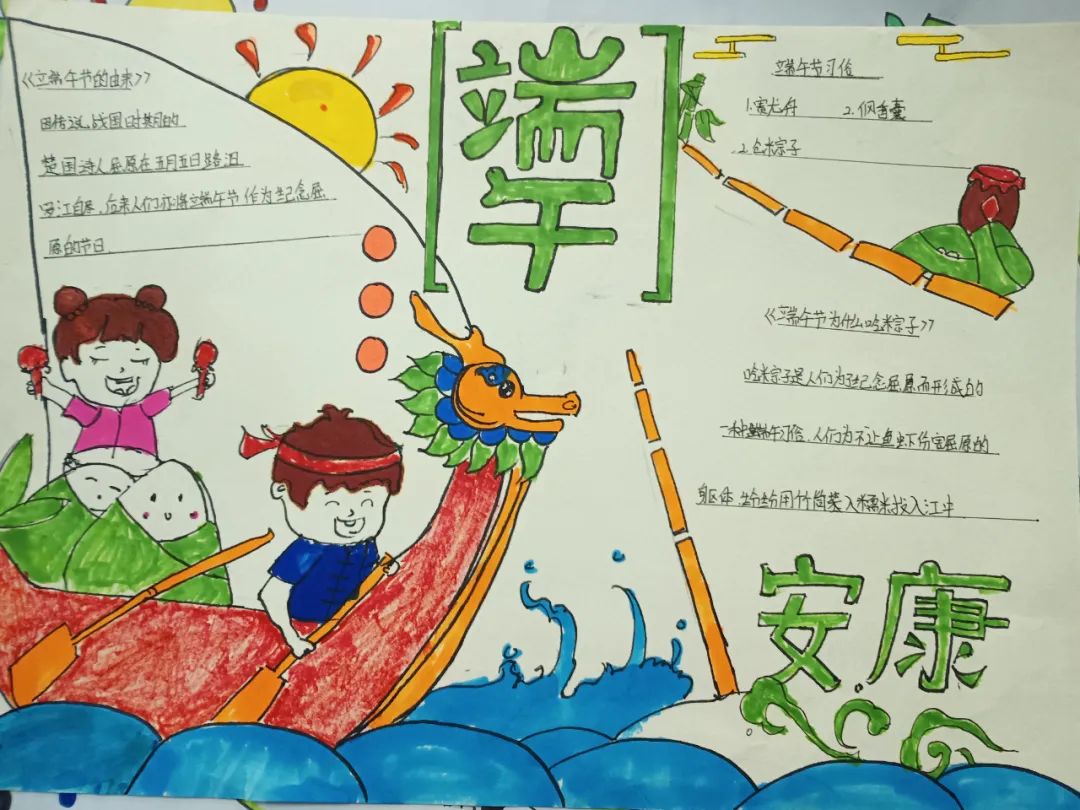 《端午节的由来》
因传说,战国时期的
楚国诗人屈原在五月五日跳汨
罗江自尽,后来人们亦将端午节作为纪念屈
原的节日.
端午
端午节习俗
1.赛龙舟 2.佩香囊
2.包粽子
《端午节为什么吃粽子》
吃粽子是人们为了纪念屈原而形成的
一种端午习俗,人们为不让鱼虾伤害屈原的
身体,纷纷用竹筒装入糯米投入江中
安康